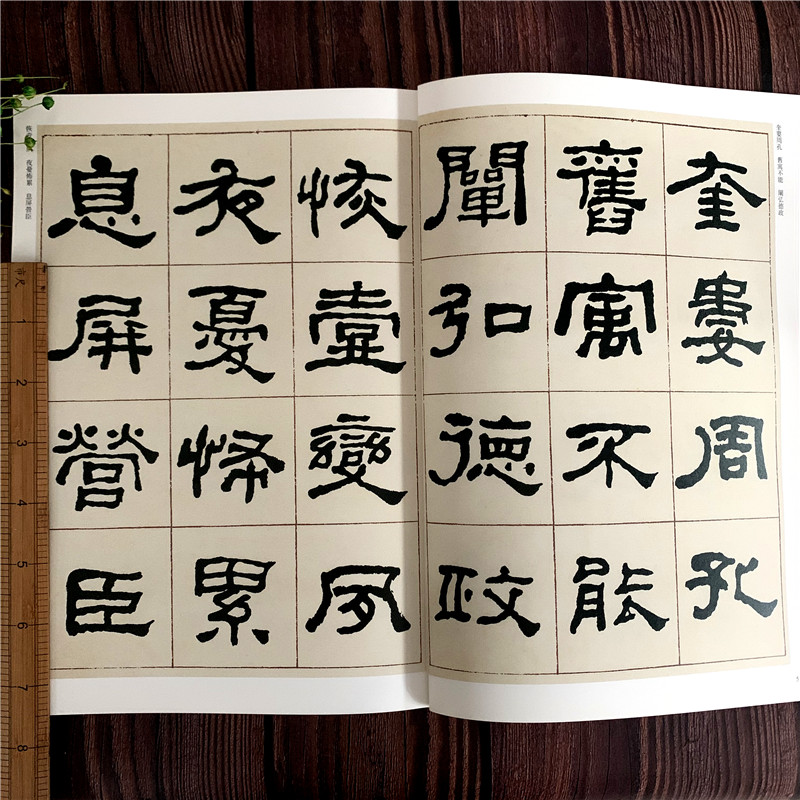 奎婁周孔
舊寓不能
闡弘德政
恢壹變夙
夜憂怖累
息屏營臣
奎婁周孔 舊寓不能 闡弘德政
恢 夜憂怖累 息屏營臣
5
市尺
1
2
3
4
5
6
7
8